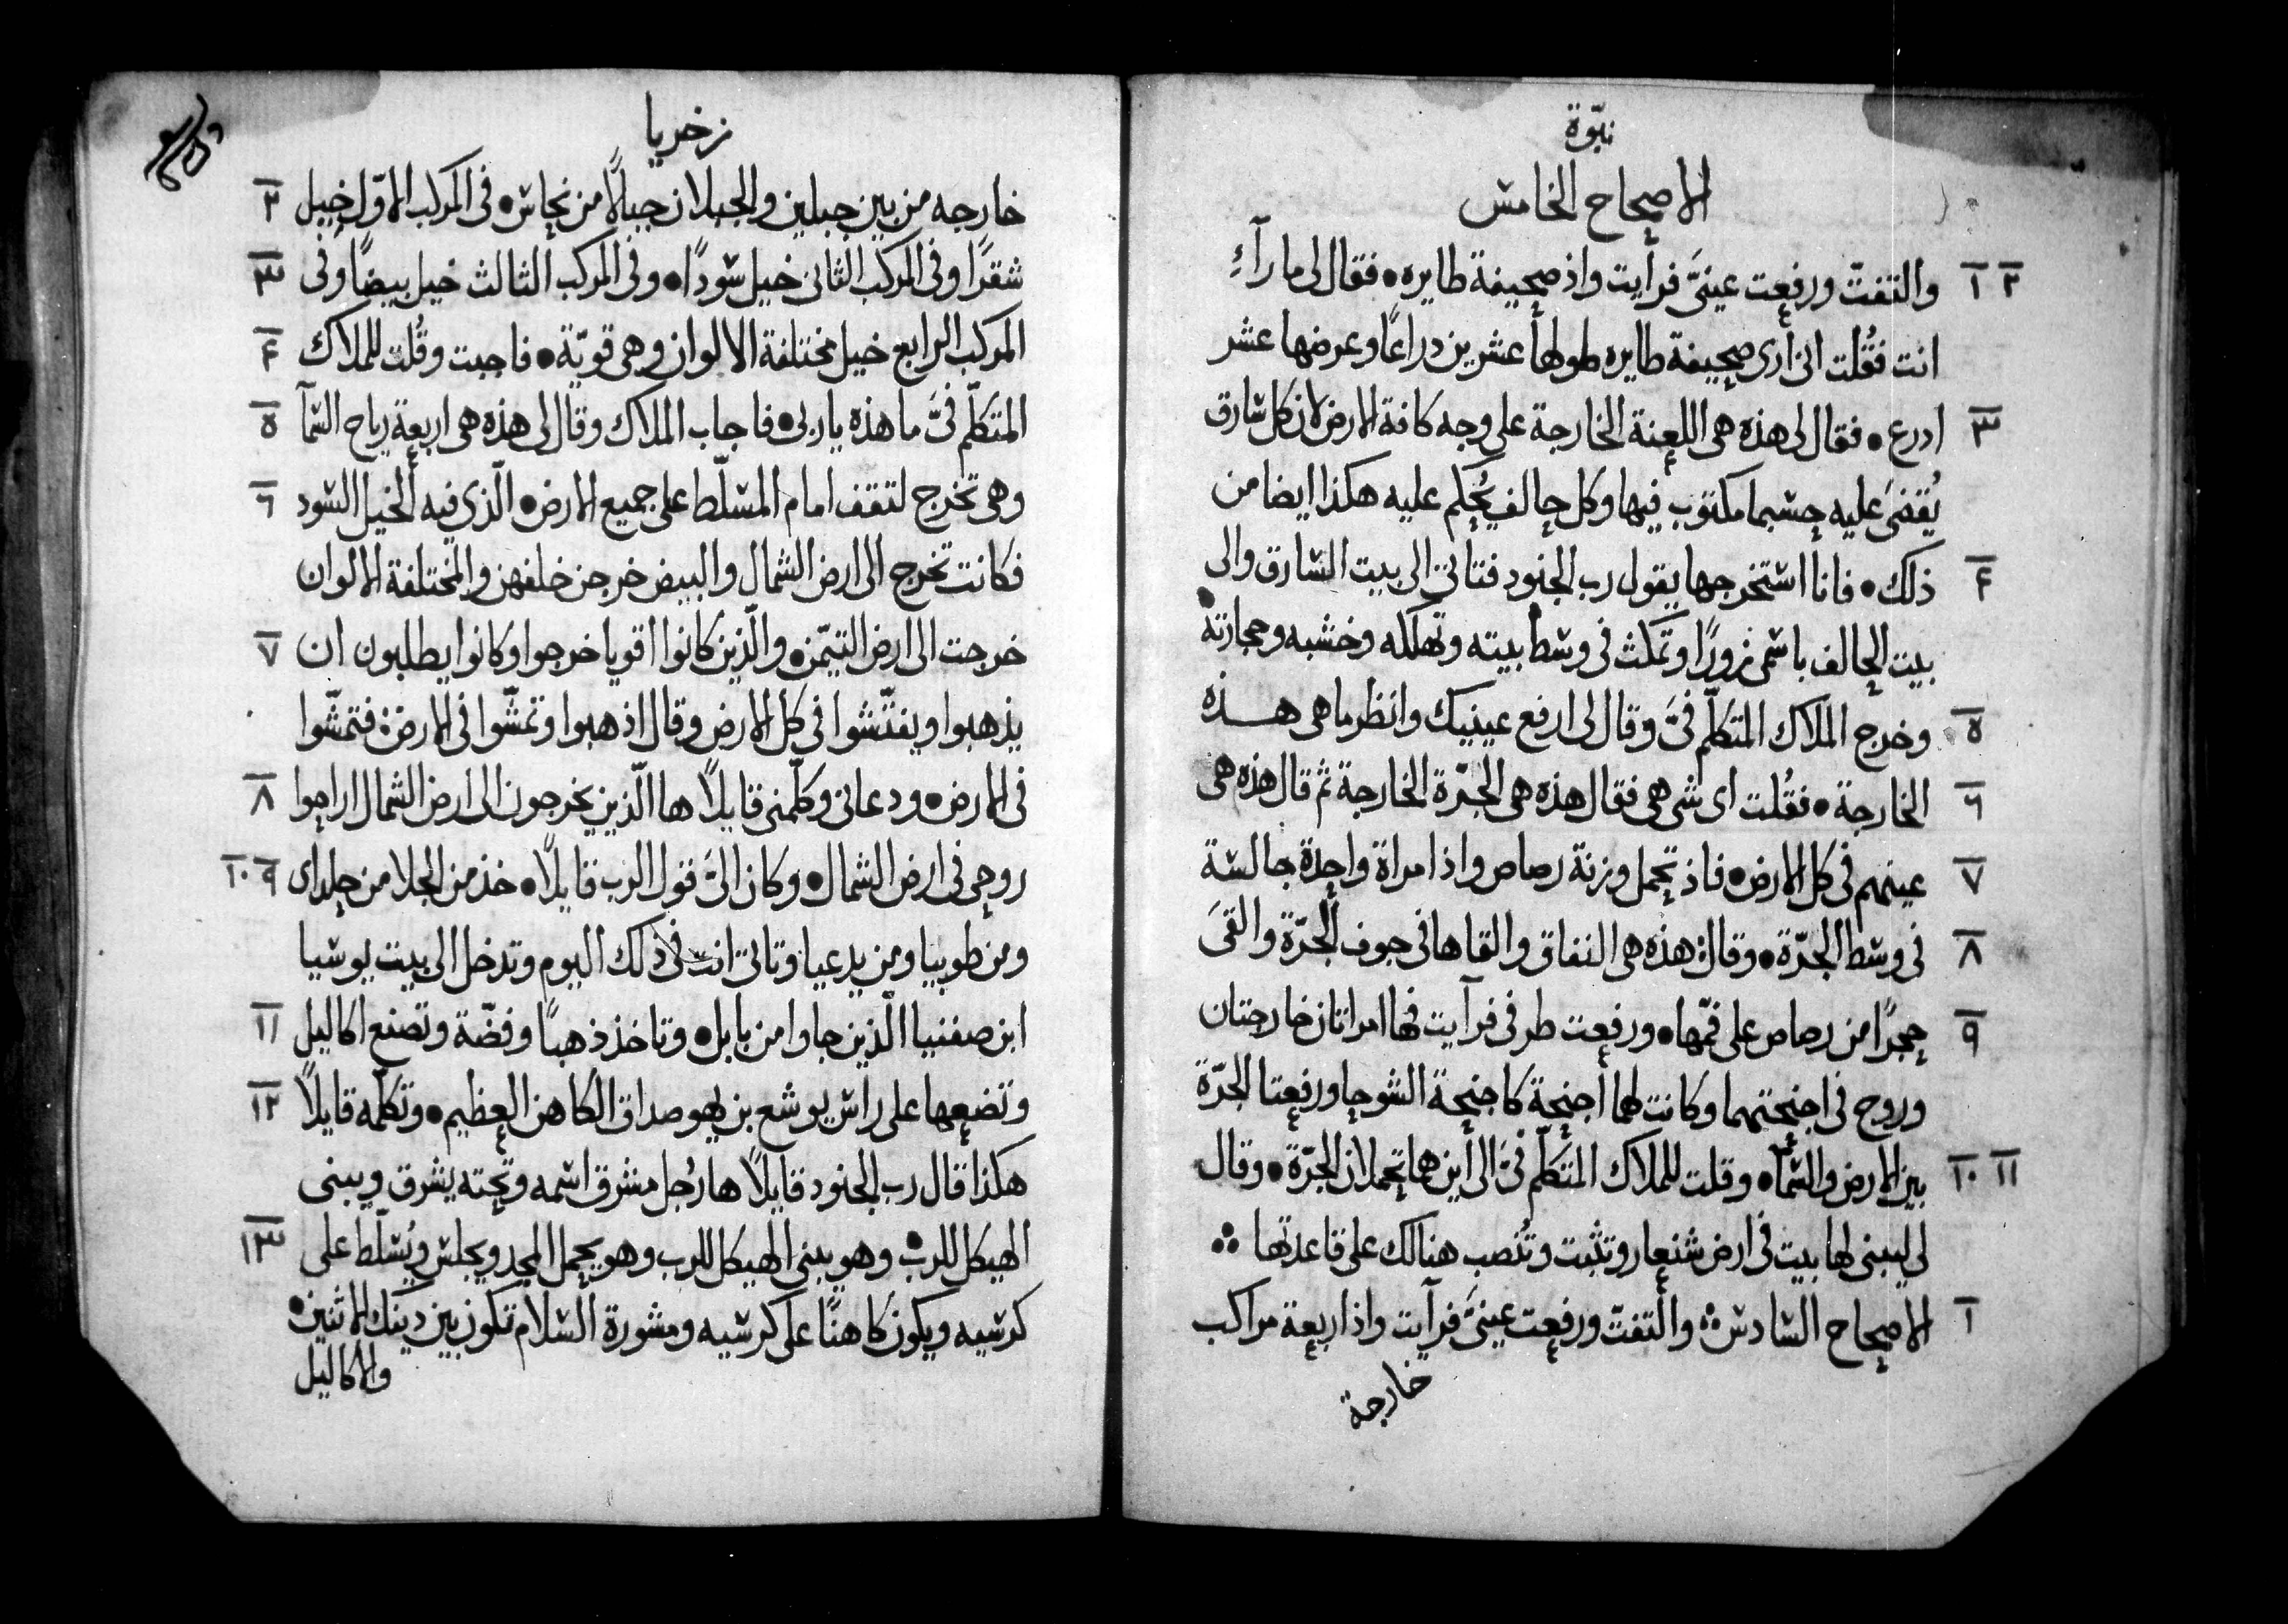 نبوّة
الاصحاح الخامس
١ ٢ والتفتّ ورفعت عينيَّ فرأيت واذ صحيفة طايره • فقال لي ما رآءِ
انت فقُلت انى أرى صحيفة طايره طولها عشرين دراعًا وعرضها عشر
٣ ادرع • فقال لى هذه هى اللعنة الخارجة على وجه كافة الارض لان كل سارق
يُقضَى عليه حسبما مكتوب فيها وكل حالف يُحكم عليه هكذا ايضا من
٤ ذلك • فانا استخرجها يقول رب الجنود فتاتى الى بيت السارق والى
بيت الحالف باسمى زورًا وتمكث فى وسط بيته وتهلكه وخشبه وحجارته •
٥ وخرج الملاك المتكلّم فىَّ وقال لى ارفع عينيك وانظر ما هى هذه
٦ الخارجة • فقُلت اى شى هى فقال هذه هى الجرّة الخارجة ثم قال هذه هى
٧ عينهم فى كل الارض • فاذ تحمل وزنة رصاص واذ امراة واحدة جالسة
٨ فى وسط الجرّة • وقال هذه هى النفاق والقاها فى جوف الجرّة والقىَ
٩ حجرًا من رصاص على فمّها • ورفعت طرفى فرآيت فها امراتان خارجتان
وروح فى اجنحتهما وكانت لهما أجنحة كاجنحة الشوحا ورفعتا الجرّة
١٠ ١١ بين الارض والسمآ • وقلت للملاك المتكلّم فىَّ الى أين ها تحملان الجرّة • وقال
لى ليبنى لها بيت فى ارض شنعار وتثبت وتُنصب هنالك على قاعدتها
١ الاصحاح السادس والتفتّ ورفعت عينىَّ فرآيت واذ اربعة مراكب
خارجة
زخريا
خارجه من بين جبلين والجبلان جبالًا من نحاس • فى المركب الاوّل خيل ٢
شقرًا وفى المركب الثانى خيل سُودًا • وفى المركب الثالث خيل بيضًا وفى ٣
المركب الرابع خيل مختلفة الالوان وهى قويّة • فاجبت وقُلت للملاك ٤
المتكلّم فىَّ ما هذه يا ربى • فاجاب الملاك وقال لى هذه هى اربعة رياح السمآ ٥
وهى تخرج لتقف امام المسلّط على جميع الارض • الّذي فيه الخيل السود ٦
فكانت تخرج الى ارض الشمال والبيض خرجن خلفهن والمختلفة الالوان
خرجت الى ارض التيمّن • والّذين كانوا اقويا خرجوا وكانوا يطلبون ان ٧
يذهبوا ويفتّشوا فى كل الارض وقال اذهبوا وتمشّوا فى الارض فتمشّوا
فى الارض • ودعانى وكلّمنى قايلًا ها الّذين يخرجون الى ارض الشمال اراحوا ٨
روحى فى ارض الشمال • وكان الىَّ قول الرب قايلًا • خذ من الجلا من حلداى ٩ ١٠
ومن طوبيا ومن يدعيا وتاتى انت فى ذلك اليوم وتدخل الى بيت يوشيا
ابن صفنيا الّذين جاوا من بابل • وتاخذ ذهبًا وفضّة وتصنع اكاليل ١١
وتضعها على راس يوشع بن يهوصداق الكاهن العظيم • وتكلّمه قايلًا ١٢
هكذا قال رب الجنود قايلًا ها رجُل مشرق اسمه وتحته يشرق ويبنى
الهيكل للرب • وهو يبنى الهيكل للرب وهو يحمل المجد ويجلس ويُسلّط على ١٣
كرسيه ويكون كاهنًا على كرسيه ومشورة السلام تكون بين دينك الاثنين •
والاكاليل